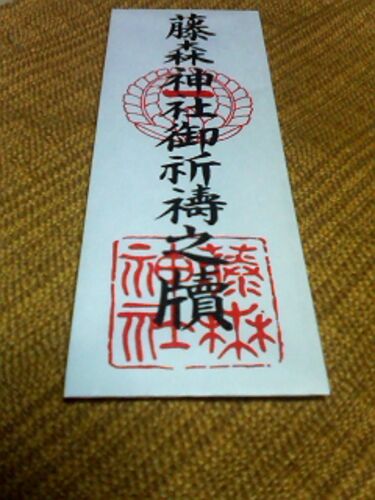 藤森神社御祈禱之牘
藤森
神社